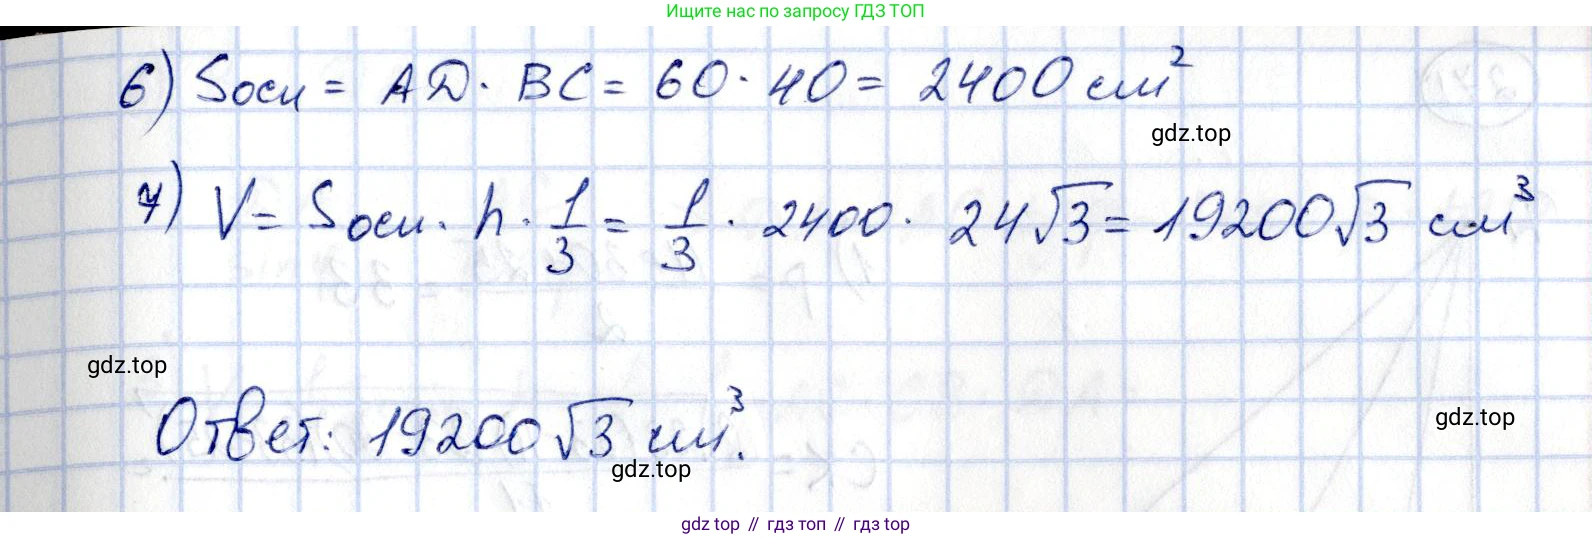 Ищите нас по запросу ГДЗ ТОП
6) Sосн = AD · BC = 60 · 40 = 2400 см²
gdz.top
7) V = Sосн · h · 1/3 = 1/3 · 2400 · 24√3 = 19200√3 см³
gdz.top
gdz.top
Ответ: 19200√3 см³.
gdz.top
gdz top // гдз топ // гдз top